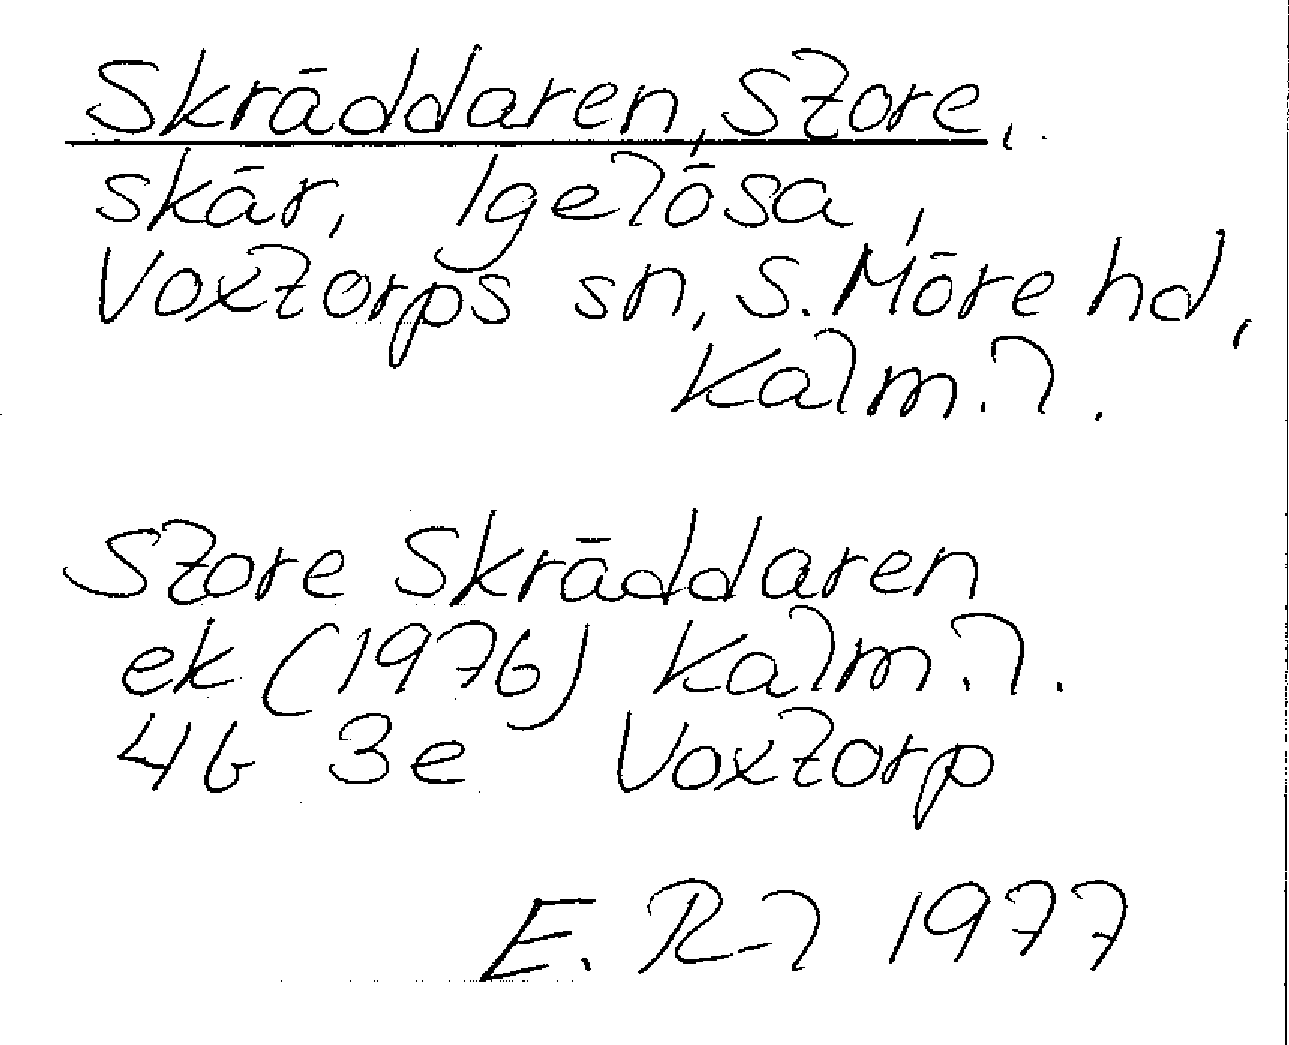 Skräddaren, Store,
skär, Igelösa,
Voxtorps sn, S. Möre hd,
Kalm. l.
Store Skräddaren
ek (1976) Kalm. l.
4G 3e Voxtorp
E. R-l 1977